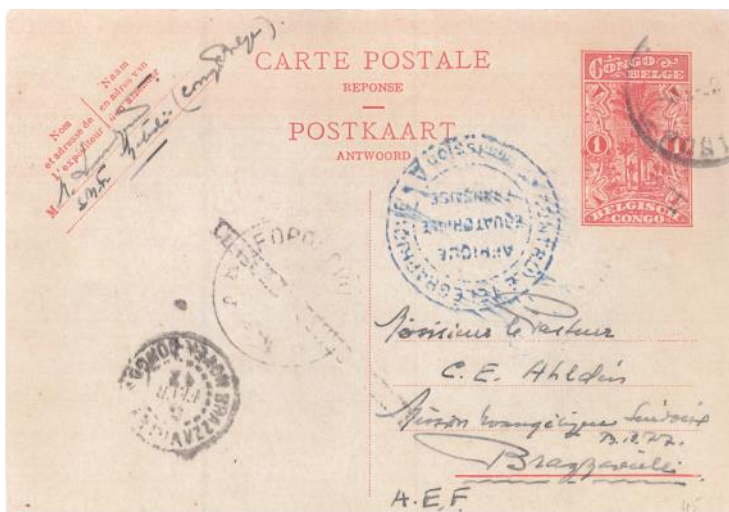 CARTE POSTALE
REPONSE
POSTKAART
ANTWOORD
Nom
et adresse de
l'expéditeur
Naam
en adres van
de afzender
M
(Congo Belge).
CONGO
BELGE
1
BELGISCH
CONGO
CONTROLE TÉLÉGRAPHIQUE
COMMISSION A
AFRIQUE
EQUATORIALE
FRANÇAISE
LEOPOLDVILLE
BRAZZAVILLE
MOYEN CONGO
Monsieur le Pasteur
C. E. Ahldén
Mission Evangélique Suédoise
B.P. 77.
Brazzaville
A.E.F.